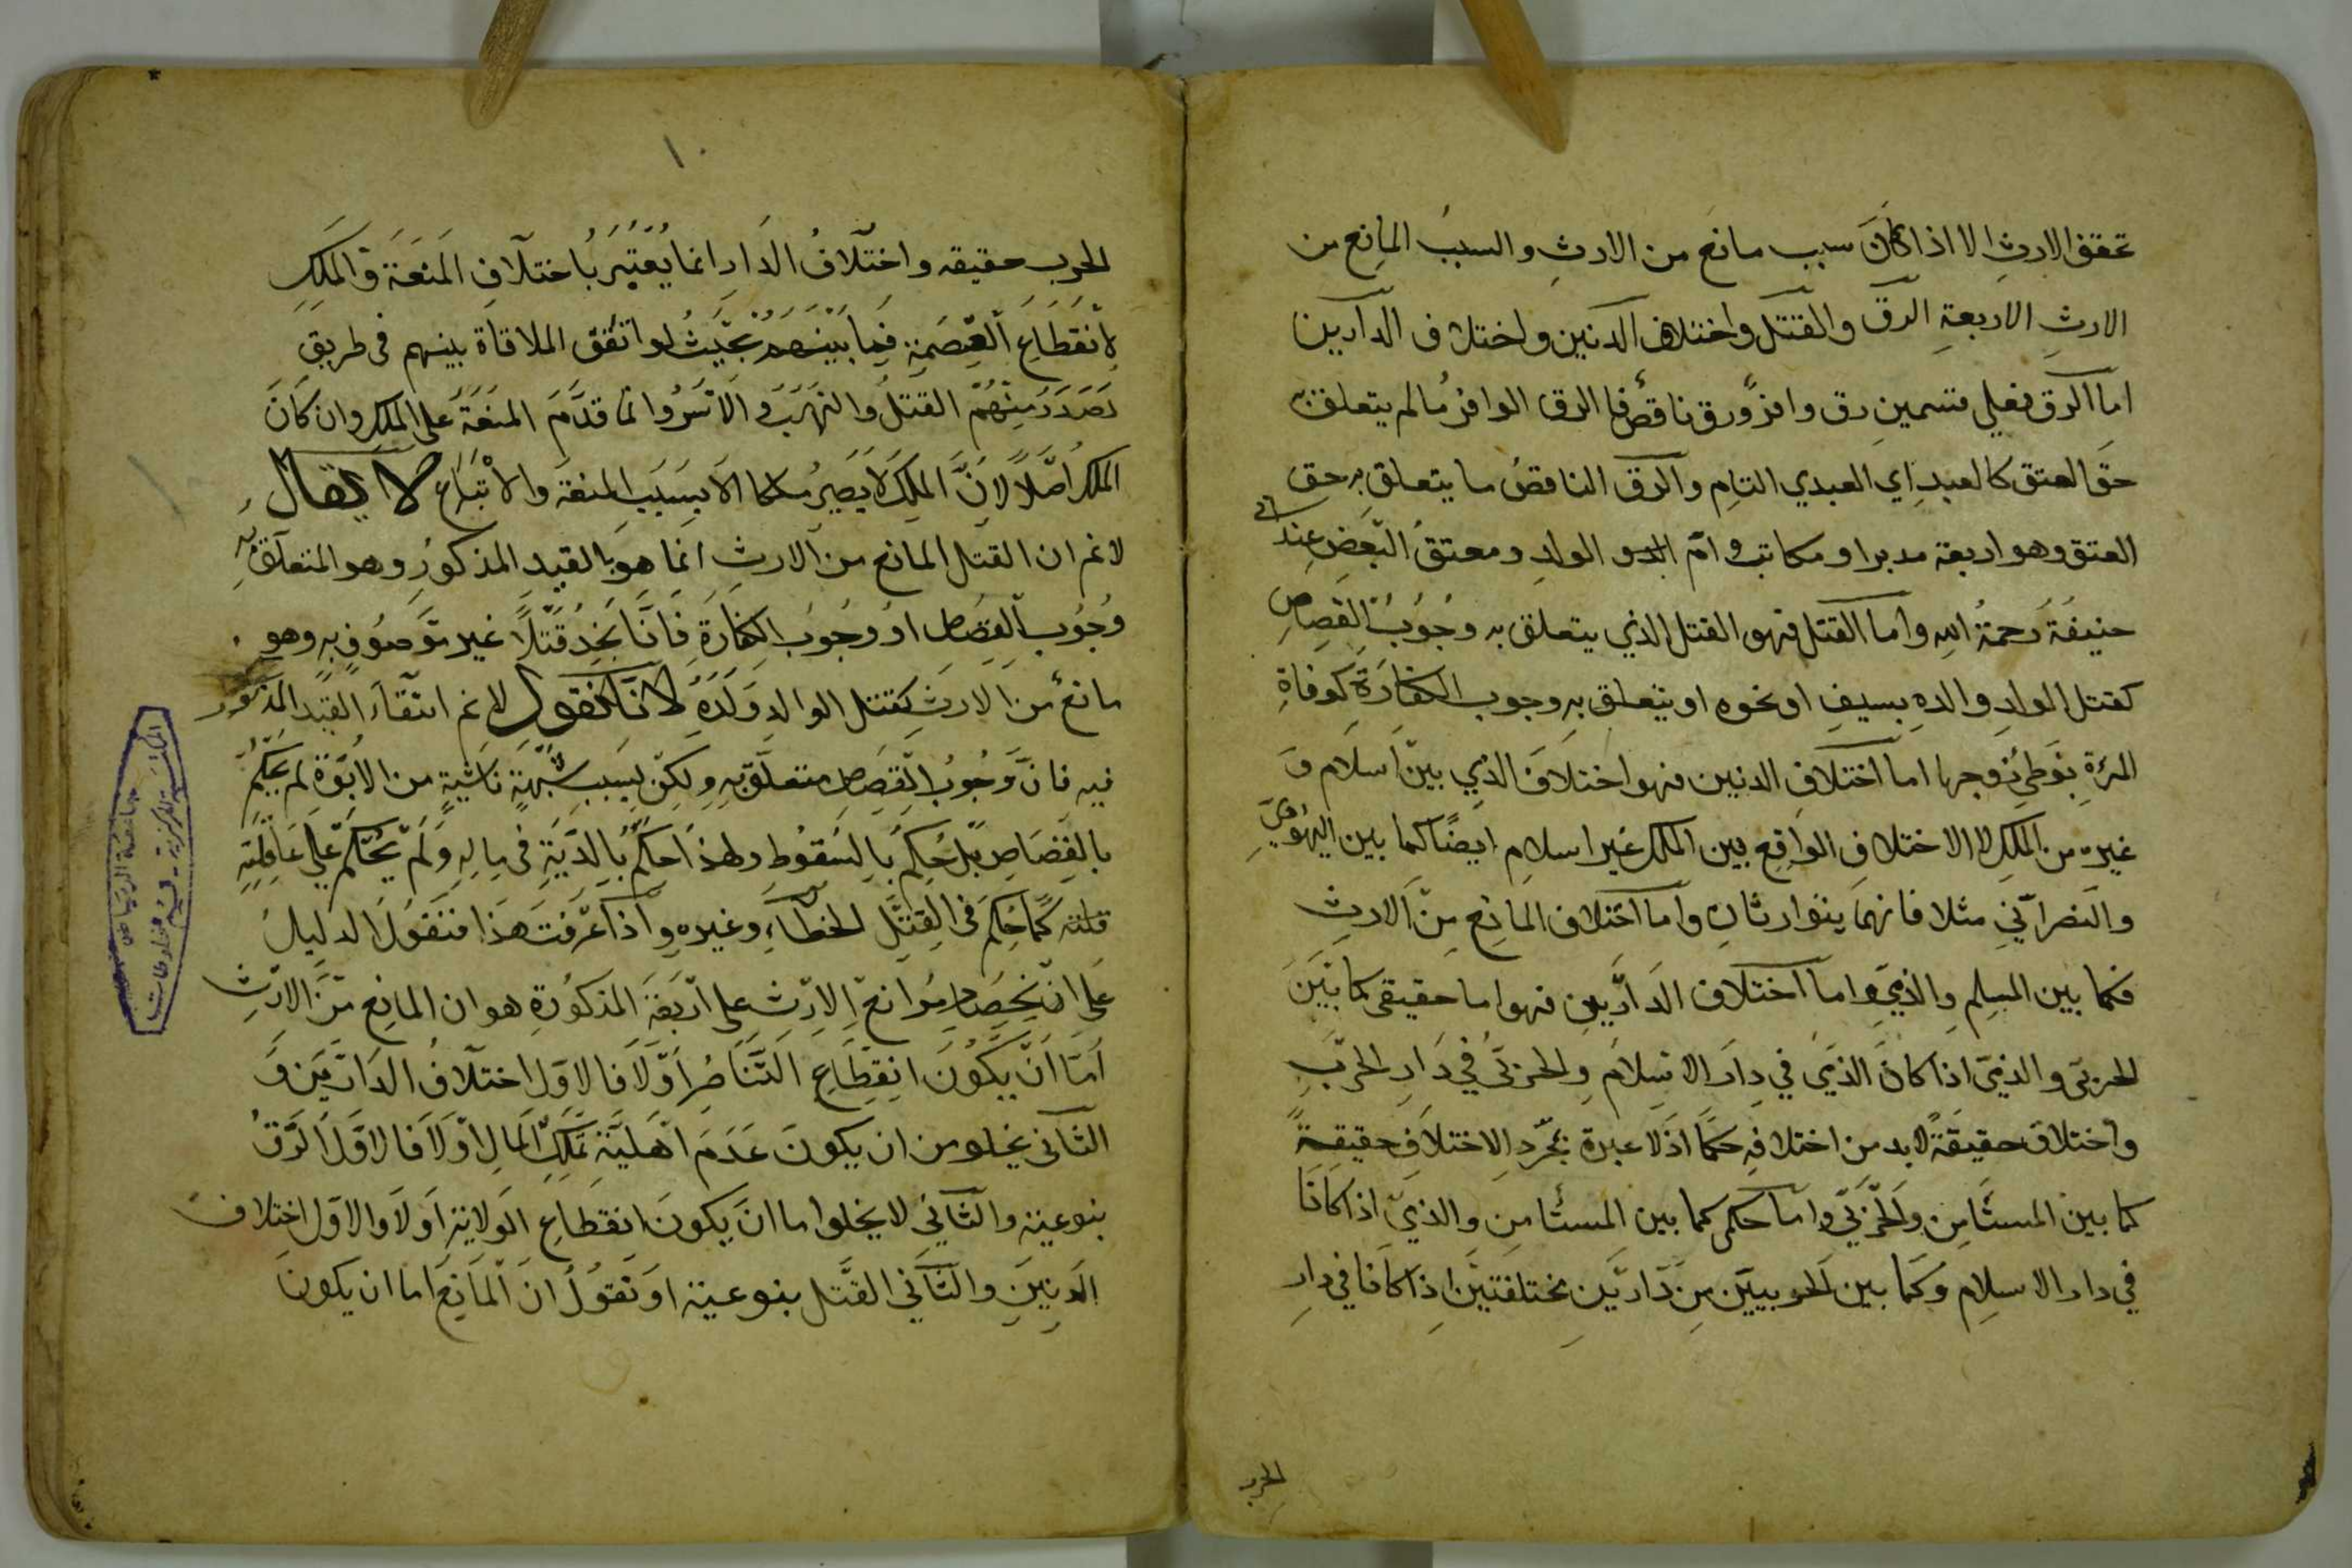 تحقق الارث الا اذا كان سبب مانع من الارث والسبب المانع من
الارث الاربعة الرق والقتل واختلاف الدنين واختلاف الدارين
اما الرق فعلى قسمين رق وافر ورق ناقص فالرق الوافر مالم يتعلق به
حق العتق كالعبد اي العبدي التام والرق الناقص ما يتعلق به حق
العتق وهو اربعة مدبر او مكاتب و ام الولد ومعتق البعض عند ابي
حنيفة رحمة الله واما القتل فهو القتل الذي يتعلق به وجوب القصاص
كقتل الولد والده بسيف او نحوه او يتعلق به وجوب الكفارة كوفاة
المرءة بوطئ زوجها اما اختلاف الدنين فهو اختلاف الذي بين اسلام و
غيره من الملك لا الاختلاف الواقع بين الملك غير اسلام ايضا كما بين اليهودي
والنصراني مثلا فانهما يتوارثان واما اختلاف المانع من الارث
فكما بين المسلم والذمي واما اختلاف الدارين فهو اما حقيقى كما بين
الحربى والذمى اذا كان الذمى في دار الاسلام والحربى في دار الحرب
واختلاف حقيقة لابد من اختلافه حكما اذ لا عبرة بمجرد الاختلاف حقيقة
كما بين المستأمن والحربي واما حكمى كما بين المستأمن والذمي اذا كانا
في دار الاسلام وكما بين الحربيين من دارين مختلفتين اذا كانا في دار
الحرب
١٠
الحرب حقيقه واختلاف الدار انما يعتبر باختلاف المنعة والملك
لانقطاع العصمة فيما بينهم بحيث لو اتفق الملاقاة بينهم فى طريق
لصدر منهم القتل والنهب والاسر وانما قدم المنعة على الملك وان كان
الملك اصلا لان الملك لا يصير ملكا الا بسبب المنعة والاتباع لا يقال
لانم ان القتل المانع من الارث انما هو بالقيد المذكور وهو المتعلق به
وجوب القصاص او وجوب الكفارة فانا نجد قتلا غير موصوف به وهو
مانع من الارث كقتل الوالد ولده لانا نقول لانم انتفاء القيد المذكور
فيه فان وجوب القصاص متعلق به ولكن بسبب شبهة ناشية من الابوة لم يحكم
بالقصاص بل حكم بالسقوط ولهذا حكم بالدية فى ماله ولم يحكم على عاقلته
قلته كما حكم فى القتل الخطاء وغيره واذا عرفت هذا فنقول الدليل
على انحصار موانع الارث على اربعة المذكورة هو ان المانع من الارث
اما ان يكون انقطاع التناصر اولا فالاول اختلاف الدارين و
الثانى يخلو من ان يكون عدم اهلية تملك المال اولا فالاول الرق
بنوعية والثاني لا يخلوا ما ان يكون انقطاع الولاية اولا والاول اختلاف
الدنين والثاني القتل بنوعية او نقول ان المانع اما ان يكون
جامعة الرياض
المكتبة المركزية - قسم المخطوطات